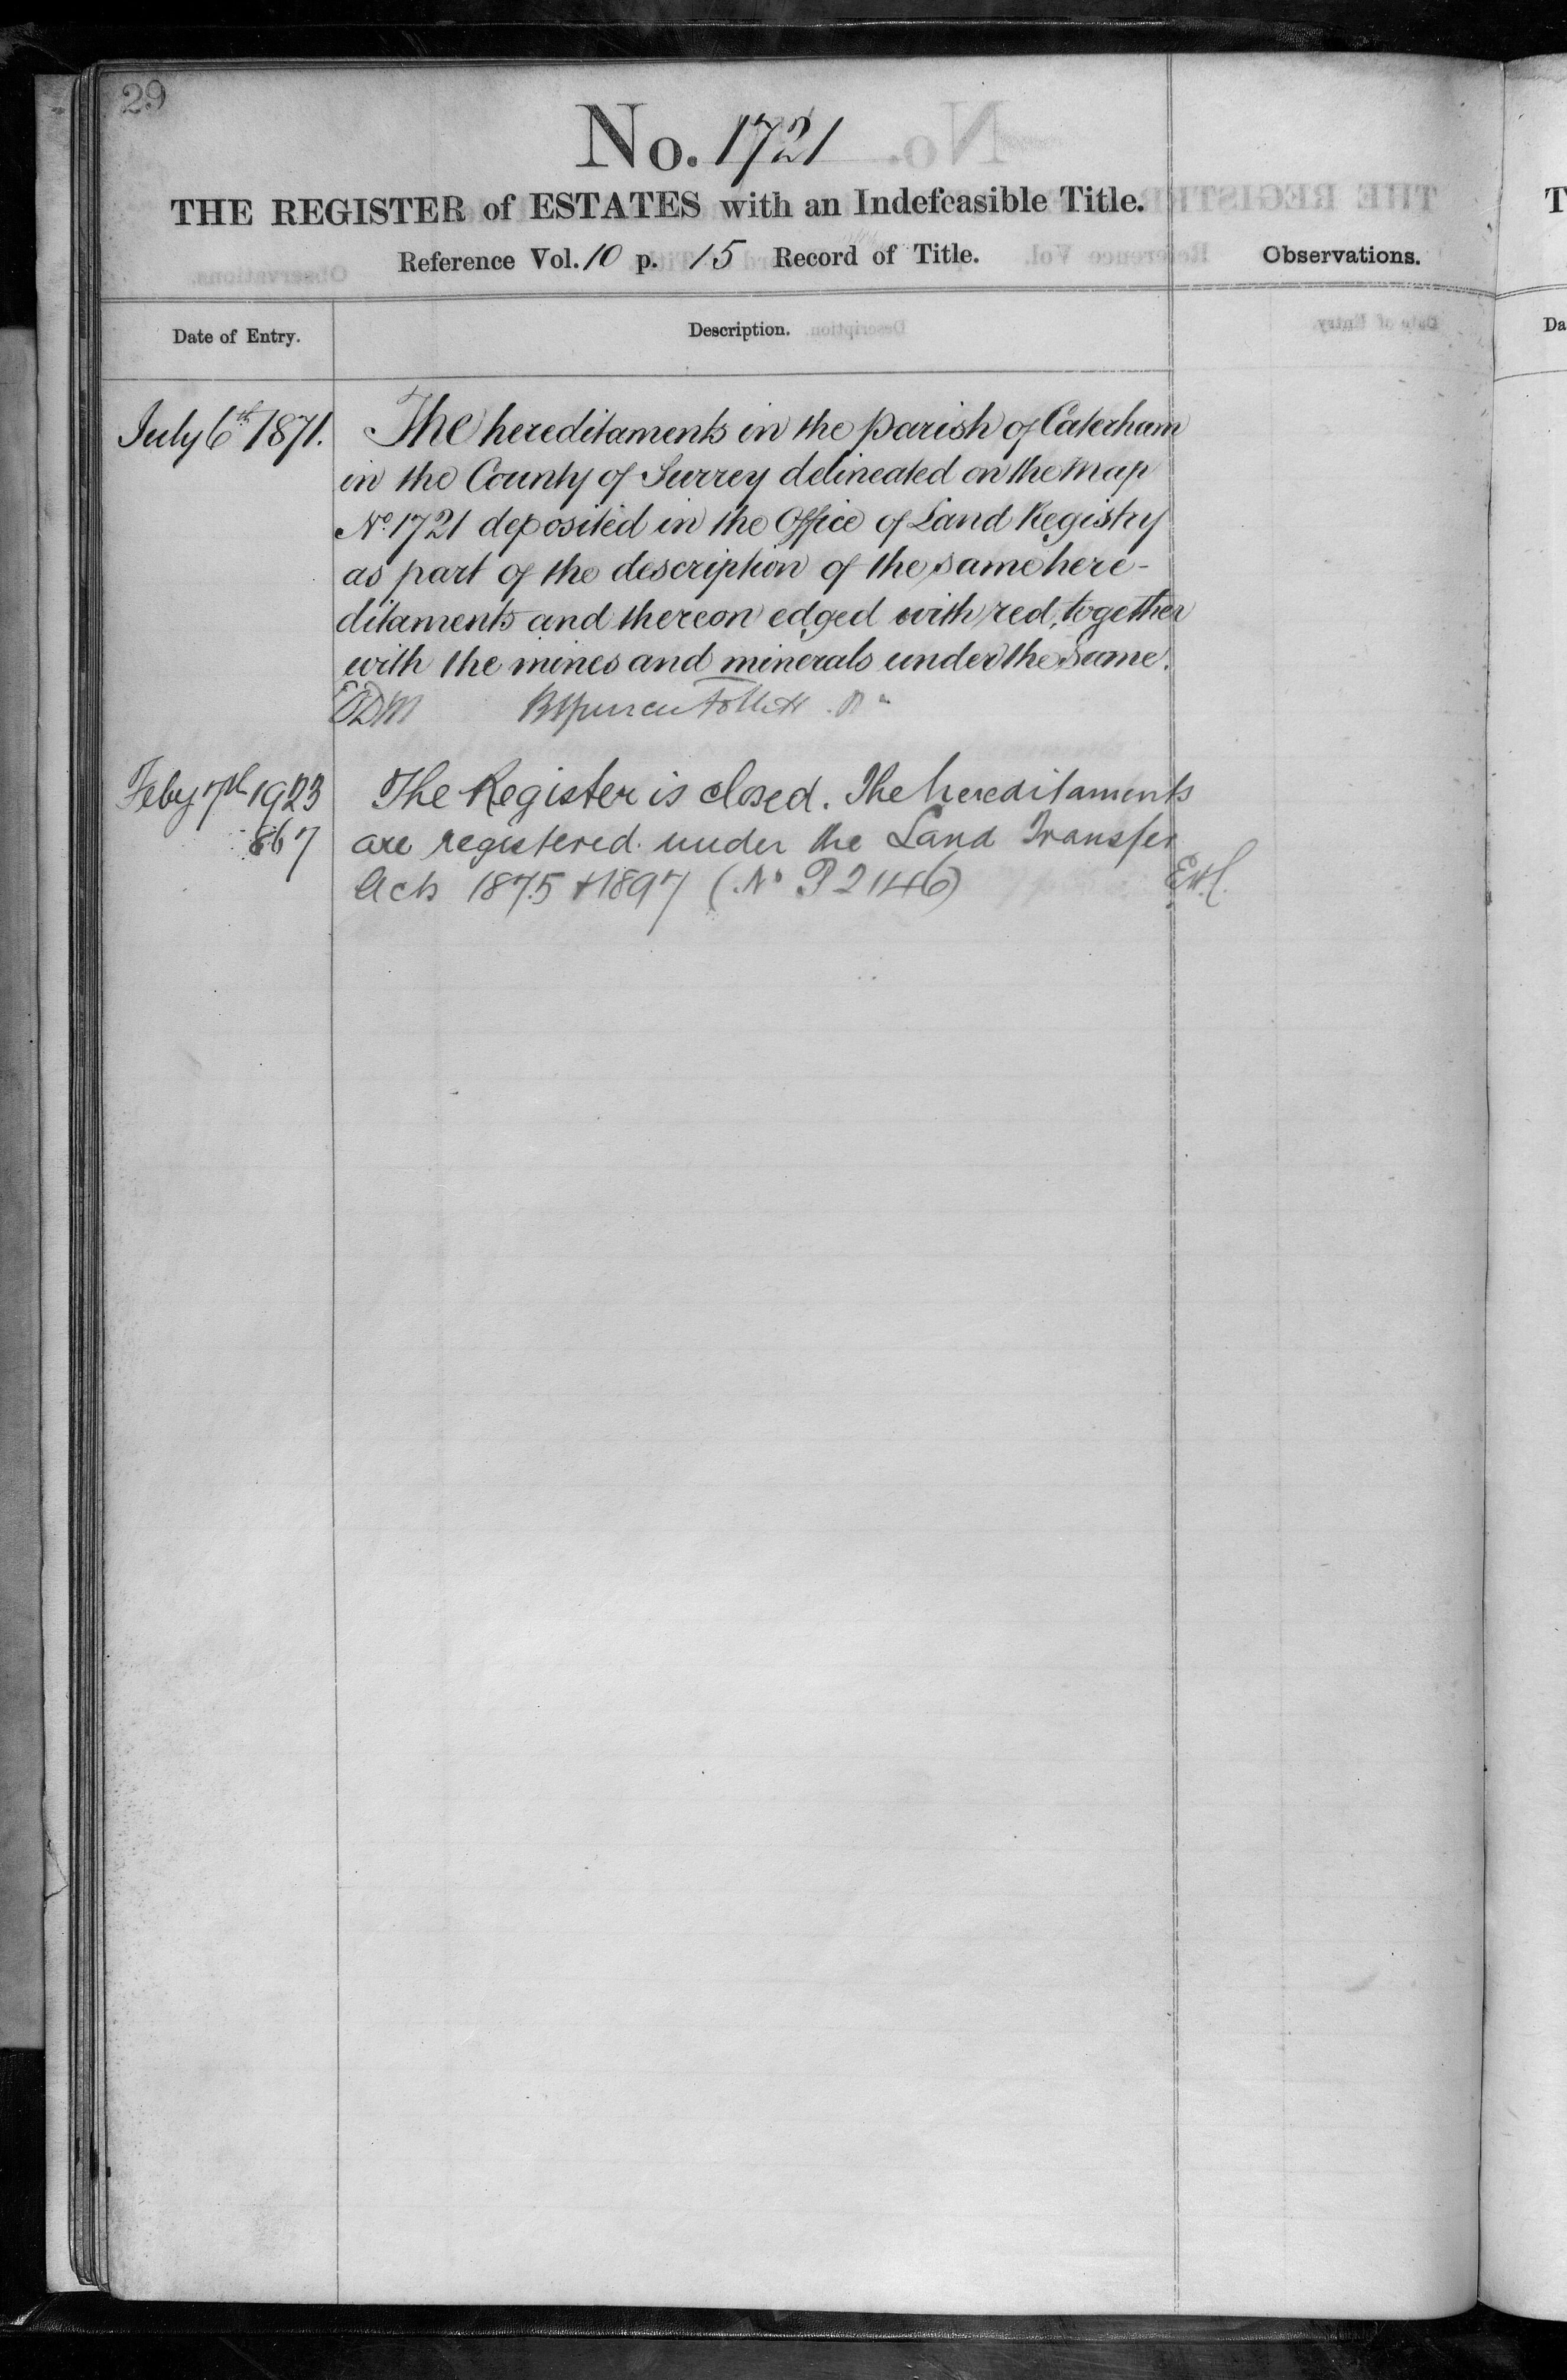 29
No. 1721
THE REGISTER of ESTATES with an Indefeasible Title.
Reference Vol. 10 p. 15 Record of Title.
Observations.
Date of Entry.
Description.
July 6th 1871.
The hereditaments in the parish of Caterham
in the County of Surrey delineated on the Map
No. 1721 deposited in the Office of Land Registry
as part of the description of the same here-
ditaments and thereon edged with red, together
with the mines and minerals under the Same.
Feby 7th 1923
867
The Register is closed. The hereditaments
are registered under the Land Transfer
Acts 1875 & 1897 (No P 2146)
T
Da